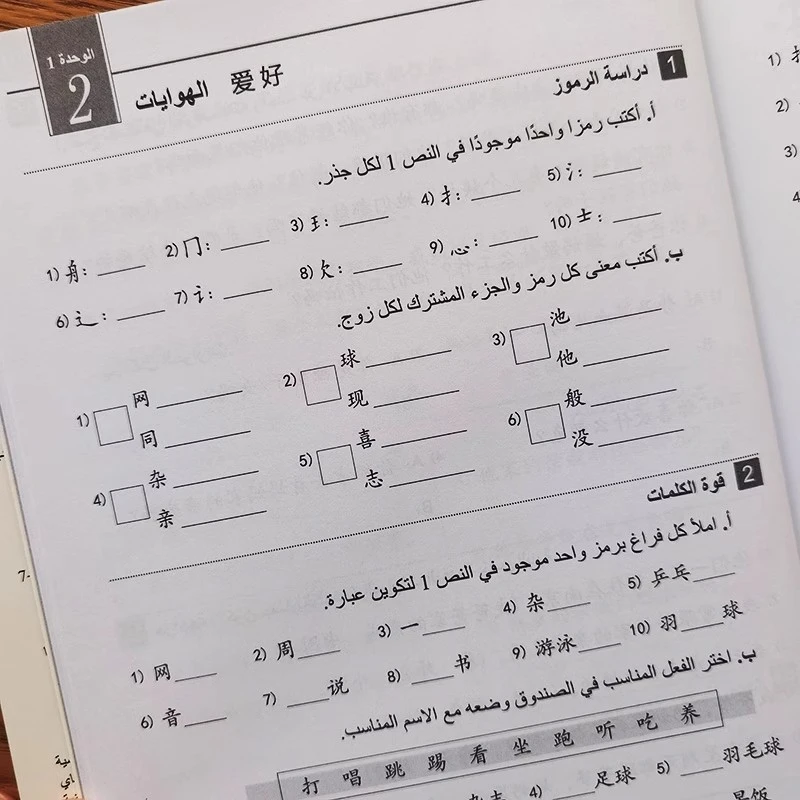 الوحدة 1
2
الهوايات 爱好
1 دراسة الرموز
أ. أكتب رمزا واحدًا موجودًا في النص 1 لكل جذر.
1) 舟: ____ 2) 冂: ____ 3) 王: ____ 4) 扌: ____ 5) 氵: ____
6) 辶: ____ 7) 讠: ____ 8) 欠: ____ 9) ____ 10) 士: ____
ب. أكتب معنى كل رمز والجزء المشترك لكل زوج.
1) 网 ____ 同 ____
2) 球 ____ 现 ____
3) 池 ____ 他 ____
4) 杂 ____ 亲 ____
5) 喜 ____ 志 ____
6) 般 ____ 没 ____
2 قوة الكلمات
أ. املأ كل فراغ برمز واحد موجود في النص 1 لتكوين عبارة.
1) 网____ 2) 周____ 3) 一____ 4) 杂____ 5) 乒乓____
6) 音____ 7) ____说 8) ____书 9) 游泳____ 10) 羽____球
ب. اختر الفعل المناسب في الصندوق وضعه مع الاسم المناسب.
打 唱 跳 踢 看 坐 跑 听 吃 养
杂志 4) ____足球 5) ____羽毛球
早饭
1) 扌
2)
3)
4
7-
1